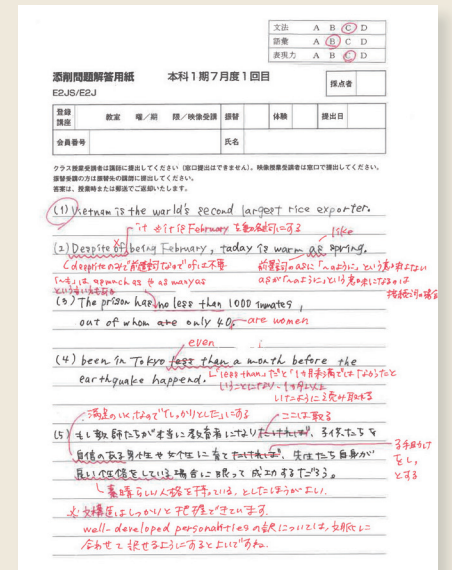 文法 A B C D
語彙 A B C D
表現力 A B C D
添削問題解答用紙 本科1期7月度1回目
E2JS/E2J
採点者
登録講座 教室 曜/期 限/映像受講 振替 体験 提出日
会員番号 氏名
クラス授業受講者は講師に提出してください(窓口提出はできません)。映像授業受講者は窓口で提出してください。
振替受講の方は振替先の講師に提出してください。
答案は、授業時または郵送でご返却いたします。
(1) Vietnam is the world's second largest rice exporter.
it や it is February を動名詞にする like
(2) Despite of being February, today is warm as spring.
despiteのみで前置詞なので of は不要
前置詞のasに「~のように」という意味はない
asが「~のように」という意味になるのは
接続詞の場合
(3) The prison has no less than 1000 inmates,
out of whom are only 40. are women
even
(4) been in Tokyo less than a month before the
earthquake happend.
「less than」だと「1ヶ月未満では
満足のいく、なので「しっかりとした」にする ここは取る
(5) もし教師たちが本当に教育者になりたければ、子供たちを
自信のある男性や女性に育てたければ、先生たち自身が
良い性格をしている場合に限って成功するだろう。
とする
素晴らしい人格を持っている、としたほうがよい。
文構造はしっかりと把握できています。
well-developed personalities の訳については、文脈に
合わせて訳せるようにするとよいですね。